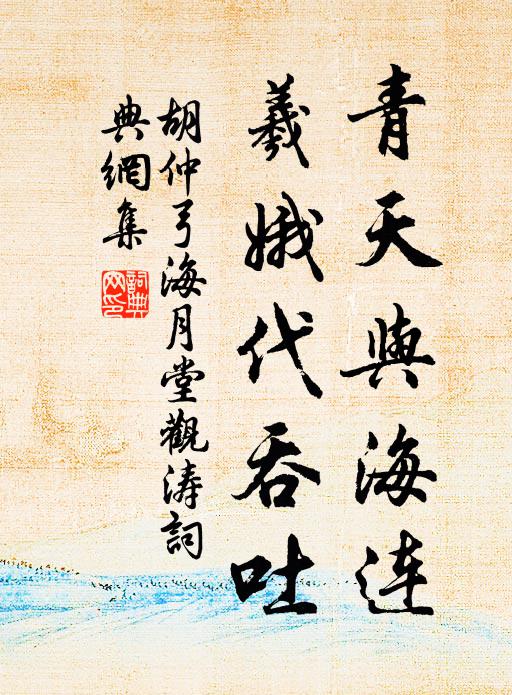 青天與海连
羲娥代吞吐
胡仲弓海月堂觀涛詞
典網集
詞典
网印